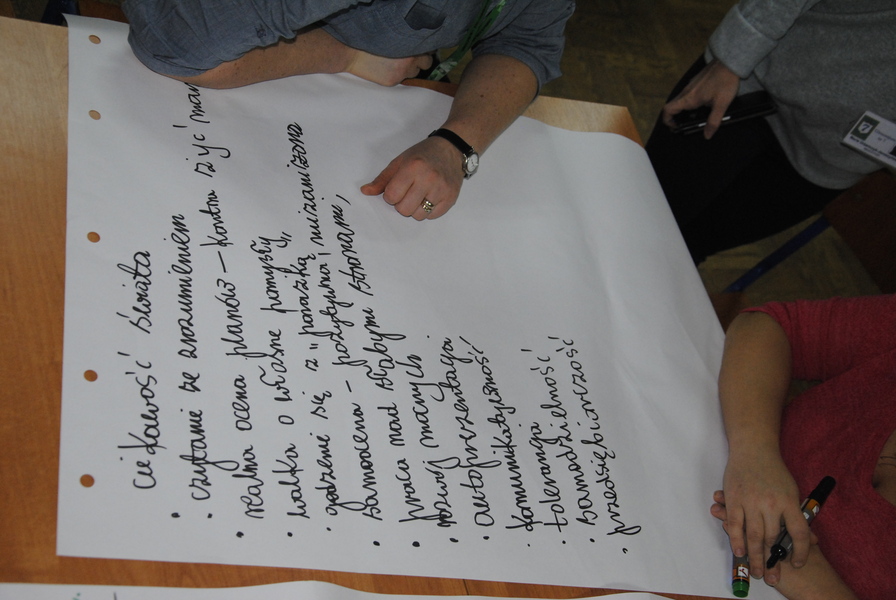 • ciekawość świata
• czytanie ze zrozumieniem
• realna ocena planów – kontra żyć mar
• walka o własne pomysły
• godzenie się z "porażką"
• samoocena – pozytywna i niezaniżona
• praca nad słabymi stronami,
• rozwój mocnych
• autoprezentacja
• komunikatywność
• tolerancja
• samodzielność
• przedsiębiorczość